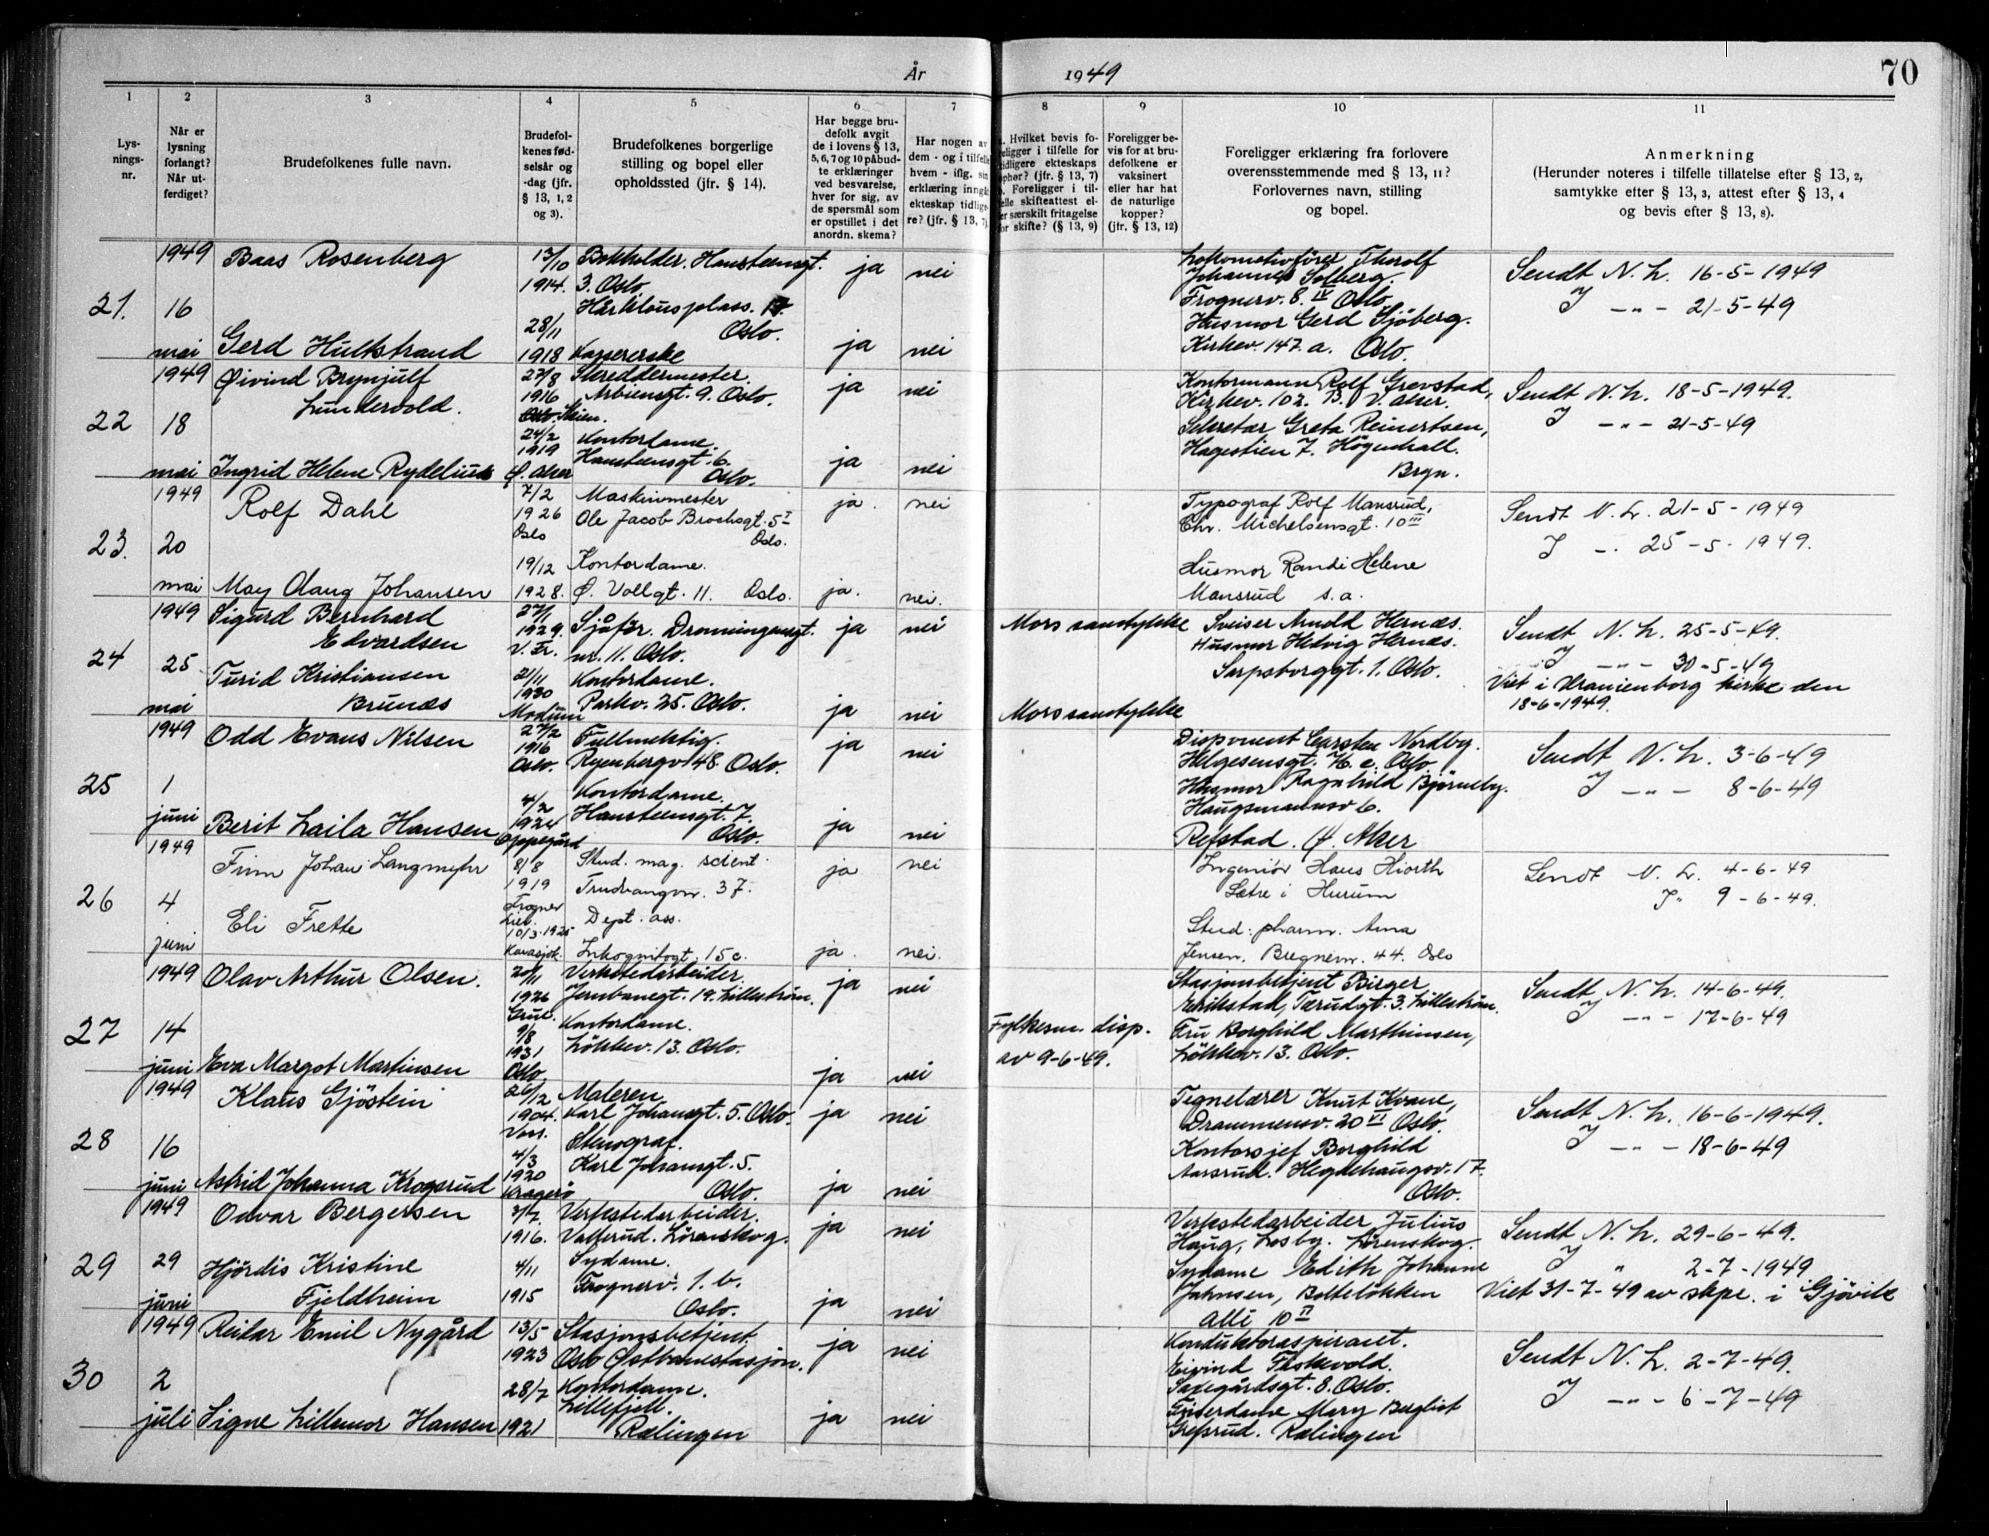 År 1949
70
1 2 3 4 5 6 7 8 9 10 11
Lys-
nings-
nr.
Når er
lysning
forlangt?
Når ut-
ferdiget?
Brudefolkenes fulle navn.
Brudefol-
kenes fød-
selsår og
-dag (jfr.
§ 13, 1, 2
og 3).
Brudefolkenes borgerlige
stilling og bopel eller
opholdssted (jfr. § 14).
Har begge bru-
defolk avgit
de i lovens § 13,
5, 6, 7 og 10 påbud-
te erklæringer
ved besvarelse,
hver for sig, av
de spørsmål som
er opstillet i det
anordn. skema?
Har nogen av
dem - og i tilfelle
hvem - iflg. sin
erklæring inngå
ekteskap tidlige-
re? (jfr. § 13, 7)
. Hvilket bevis fo-
religger i tilfelle for
tidligere ekteskaps
ophør? (jfr. § 13, 7)
. Foreligger i til-
elle skifteattest el-
er særskilt fritagelse
for skifte? (§ 13, 9)
Foreligger be-
vis for at bru-
defolkene er
vaksinert
eller har hat
de naturlige
kopper?
(jfr. § 13, 12)
Foreligger erklæring fra forlovere
overensstemmende med § 13, 11?
Forlovernes navn, stilling
og bopel.
Anmerkning
(Herunder noteres i tilfelle tillatelse efter § 13, 2,
samtykke efter § 13, 3, attest efter § 13, 4
og bevis efter § 13, 8).
21. 1949 16 mai
Baas Rosenberg
13/10 1914.
Bokholder. Hansteensgt.
3. Oslo.
ja nei
Gerd Hultstrand
28/11 1918
Hårklous plass. 17.
Oslo.
Kassererske
ja nei
Lokomotivfører Thorolf
Johannes Solberg.
Frognerv. 8. IV Oslo
Husmor Gerd Sjöberg.
Kirkev. 147. a. Oslo.
Sendt N. L. 16-5-1949
J -"- 21-5-49
22 1949 18 mai
Øivind Brynjulf
Lundervold.
27/8
1916
Skien.
Skreddermester.
Arbiensgt. 9. Oslo.
ja nei
Ingrid Helene Rydelius
24/2
1919
Ø. Aker
Kontordame.
Hansteensgt. 6.
Oslo.
ja nei
Kontormann Rolf Grevstad,
Kirkev. 102. B. V. Aker.
Sekretær Greta Reinertsen,
Hagestien 7. Högenhall.
Bryn.
Sendt N. L. 18-5-1949.
J -"- 21-5-49
23. 1949 20 mai
Rolf Dahl
7/2
1926
Oslo
Maskinmester
Ole Jacob Brochsgt. 5 I
Oslo.
ja. nei
May Olaug Johansen
19/12
1928.
Kontordame.
Ø. Vollgt. 11. Oslo.
ja. nei.
Typograf Rolf Mansrud,
Chr. Michelsensgt. 10 III
Husmor Randi Helene
Mansrud s.a.
Sendt N. L. 21-5-1949
J -. 25-5-1949.
24 1949 25 mai
Sigurd Bernhard
Edvardsen
27/1
1929.
V. Fr.
Sjåfør. Dronningensgt.
nr. 11. Oslo.
ja nei
Mors samtykke
Turid Kristiansen
Brunæs
21/11
1930
Modum
Kontordame.
Parkv. 25. Oslo.
ja nei
Mors samtykke
Sveiser Arnold Hernæs.
Husmor Hedvig Hernæs.
Sarpsborggt. 1. Oslo.
Sendt N. L. 25-5-49.
J -"- 30-5-49
Viet i Uranienborg kirke den
18-6-1949.
25 1949 1 juni
Odd Evans Nilsen
27/2
1916
Oslo.
Fullmektig.
Ryenbergv 48. Oslo.
ja nei
Berit Laila Hansen
4/2
1924
Oppegård
Kontordame.
Hansteensgt. 7.
Oslo.
ja nei
Disponent Carsten Nordby.
Helgesensgt. Oslo
Husmor Ragnhild Bjørneby.
Haugsmannsv 6.
Refstad. Ø. Aker
Sendt N. L. 3-6-49
J -"- 8-6-49
26 1949 4 juni
Finn Johan Langmyhr
8/8
1919
Frogner
Lier.
Stud. mag. scient.
Trudvangvn. 37.
ja nei
Eli Frette
10/3-1925
Karasjok.
Dept. ass.
Inkognitogt. 15 c.
ja. nei.
Ingeniør Hans Hiorth
Sætre i Hurum
Stud. pharm. Arna
Jensen, Bregnevn. 44. Oslo
Sendt N. L. 4-6-49
J" 9-6-49.
27 1949 14 juni
Olav Arthur Olsen.
20/11
1926
Grue.
Verkstedarbeider.
Jernbanegt. 19. Lillestrøm.
ja nei
Eva Margot Martinsen
9/8
1931
Oslo
Kontordame.
Løkkev. 13. Oslo.
ja nei
Fylkesm. disp.
av 9-6-49.
Stasjonsbetjent Birger
Erikstad, Tærudgt. 3. Lillestrøm.
Fru Borghild Marthinsen,
Løkkev. 13. Oslo.
Sendt N. L. 14-6-49.
J -"- 17-6-49
28 1949 16 juni
Klaus Gjöstein
26/12
1904.
Voss.
Maleren
Karl Johansgt. 5. Oslo.
ja nei
Astrid Johanna Krogsrud
4/3
1920
Kragerø
Stenograf.
Karl Johansgt. 5.
Oslo.
ja nei
Tegnelærer Knut Kvane,
Drammensv. 20 VI Oslo.
Kontorsjef Borghild
Aarsrud. Hegdehaugsv. 17.
Oslo.
Sendt N. L. 16-6-1949.
J -"- 18-6-49
29 1949 29 juni
Odvar Bergersen
1916.
Verkstedarbeider.
Vallerud. Lørenskog.
ja nei
Hjördis Kristine
Fjeldheim
4/11
1915
Sydame.
Frognerv. 1. b.
Oslo.
ja nei
Verkstedarbeider Julius
Haug, Losby. Lørenskog.
Sydame Edith Johanne
Jahnsen, Bolteløkken
Allé 10 II
Sendt N. L. 29-6-49.
J " 2-7-1949
Viet 31-7-49 av skpr. i Gjövik
30 1949 2 juli
Reidar Emil Nygård
13/5
1923
Stasjonsbetjent.
Oslo Østbanestasjon.
ja nei
Signe Lillemor Hansen
28/7
1921
Kontordame.
Lillefjell.
Rælingen
ja nei
Konduktøraspirant.
Eivind Thokvold.
Saxegårdsgt. 8. Oslo.
Frisørdame Mary Bergliot
Grefsrud. Rælingen
Sendt N. L. 2-7-49.
J -"- 6-7-49